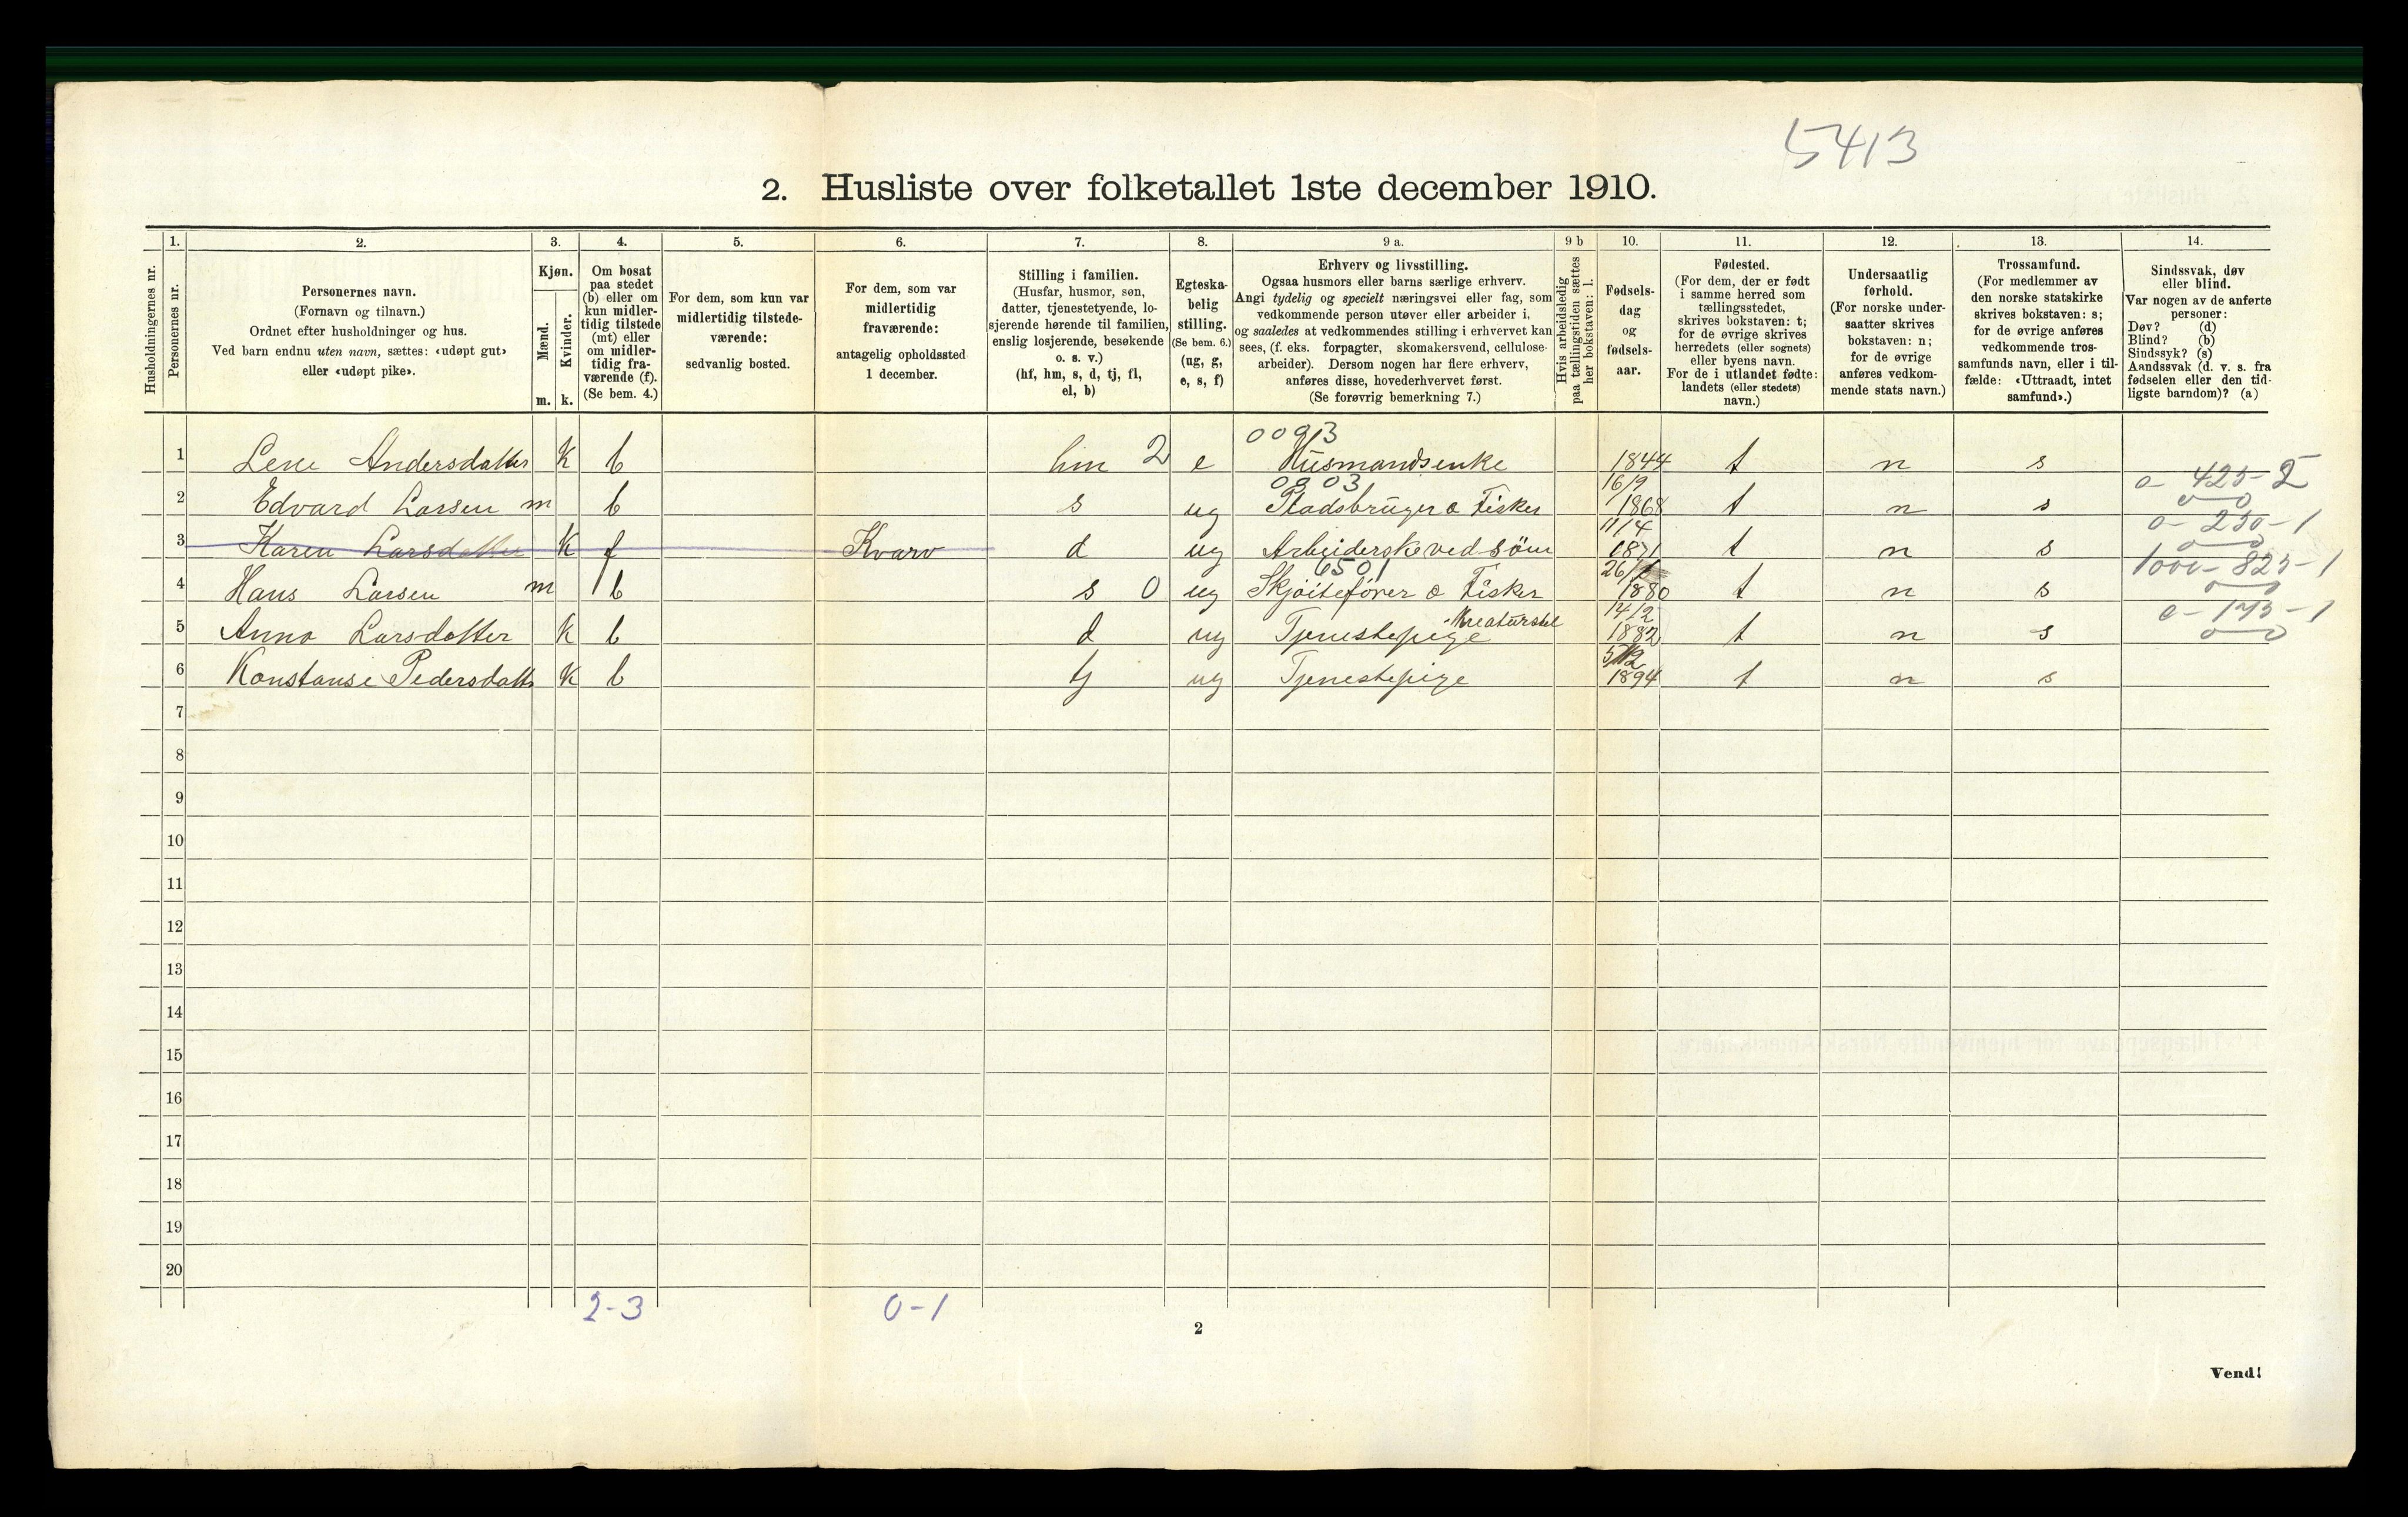 5413
2. Husliste over folketallet 1ste december 1910.
Husholdningernes nr.
1.
Personernes nr.
2.
Personernes navn.
(Fornavn og tilnavn.)
Ordnet efter husholdninger og hus.
Ved barn endnu uten navn, sættes: «udøpt gut»
eller «udøpt pike».
3.
Kjøn.
Mænd.
Kvinder.
m. k.
4.
Om bosat
paa stedet
(b) eller om
kun midler-
tidig tilstede
(mt) eller
om midler-
tidig fra-
værende (f).
(Se bem. 4.)
5.
For dem, som kun var
midlertidig tilstede-
værende:
sedvanlig bosted.
6.
For dem, som var
midlertidig
fraværende:
antagelig opholdssted
1 december.
7.
Stilling i familien.
(Husfar, husmor, søn,
datter, tjenestetyende, lo-
sjerende hørende til familien,
enslig losjerende, besøkende
o. s. v.)
(hf, hm, s, d, tj, fl,
el, b)
8.
Egteska-
belig
stilling.
(Se bem. 6.)
(ug, g,
e, s, f)
9 a.
Erhverv og livsstilling.
Ogsaa husmors eller barns særlige erhverv.
Angi tydelig og specielt næringsvei eller fag, som
vedkommende person utøver eller arbeider i,
og saaledes at vedkommendes stilling i erhvervet kan
sees, (f. eks. forpagter, skomakersvend, cellulose-
arbeider). Dersom nogen har flere erhverv,
anføres disse, hovederhvervet først.
(Se forøvrig bemerkning 7.)
9 b
Hvis arbeidsledig
paa tællingstiden sættes
her bokstaven: l.
10.
Fødsels-
dag
og
fødsels-
aar.
11.
Fødested.
(For dem, der er født
i samme herred som
tællingsstedet,
skrives bokstaven: t;
for de øvrige skrives
herredets (eller sognets)
eller byens navn.
For de i utlandet fødte:
landets (eller stedets)
navn.)
12.
Undersaatlig
forhold.
(For norske under-
saatter skrives
bokstaven: n;
for de øvrige
anføres vedkom-
mende stats navn.)
13.
Trossamfund.
(For medlemmer av
den norske statskirke
skrives bokstaven: s;
for de øvrige anføres
vedkommende tros-
samfunds navn, eller i til-
fælde: «Uttraadt, intet
samfund».)
14.
Sindssvak, døv
eller blind.
Var nogen av de anførte
personer:
Døv? (d)
Blind? (b)
Sindssyk? (s)
Aandssvak (d. v. s. fra
fødselen eller den tid-
ligste barndom)? (a)
0093
1 Lene Andersdatter K b hm 2 e Husmandsenke 1844 t n s
0903 16/9 0-425-2
2 Edvard Larsen m b s ug Pladsbruger o Fisker 1868 t n s
11/4 0-250-1
3 Karen Larsdatter K f Kvarv d ug Arbeiderske ved söm 1871 t n s
6501 1000-825-1
4 Hans Larsen m b s 0 ug Skjöitefører o Fisker 1880 t n s
Kreaturstel 14/2 0-175-1
5 Anna Larsdatter K b d ug Tjenestepige 1882 t n s
6 Konstanse Pedersdatt K b tj ug Tjenestepige 1894 t n s
7
8
9
10
11
12
13
14
15
16
17
18
19
20
2-3 0-1
2
Vend!